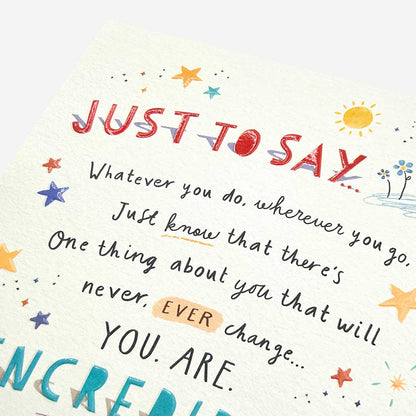 JUST TO SAY...
Whatever you do, wherever you go,
Just know that there's
One thing about you that will
never, EVER change...
YOU. ARE.